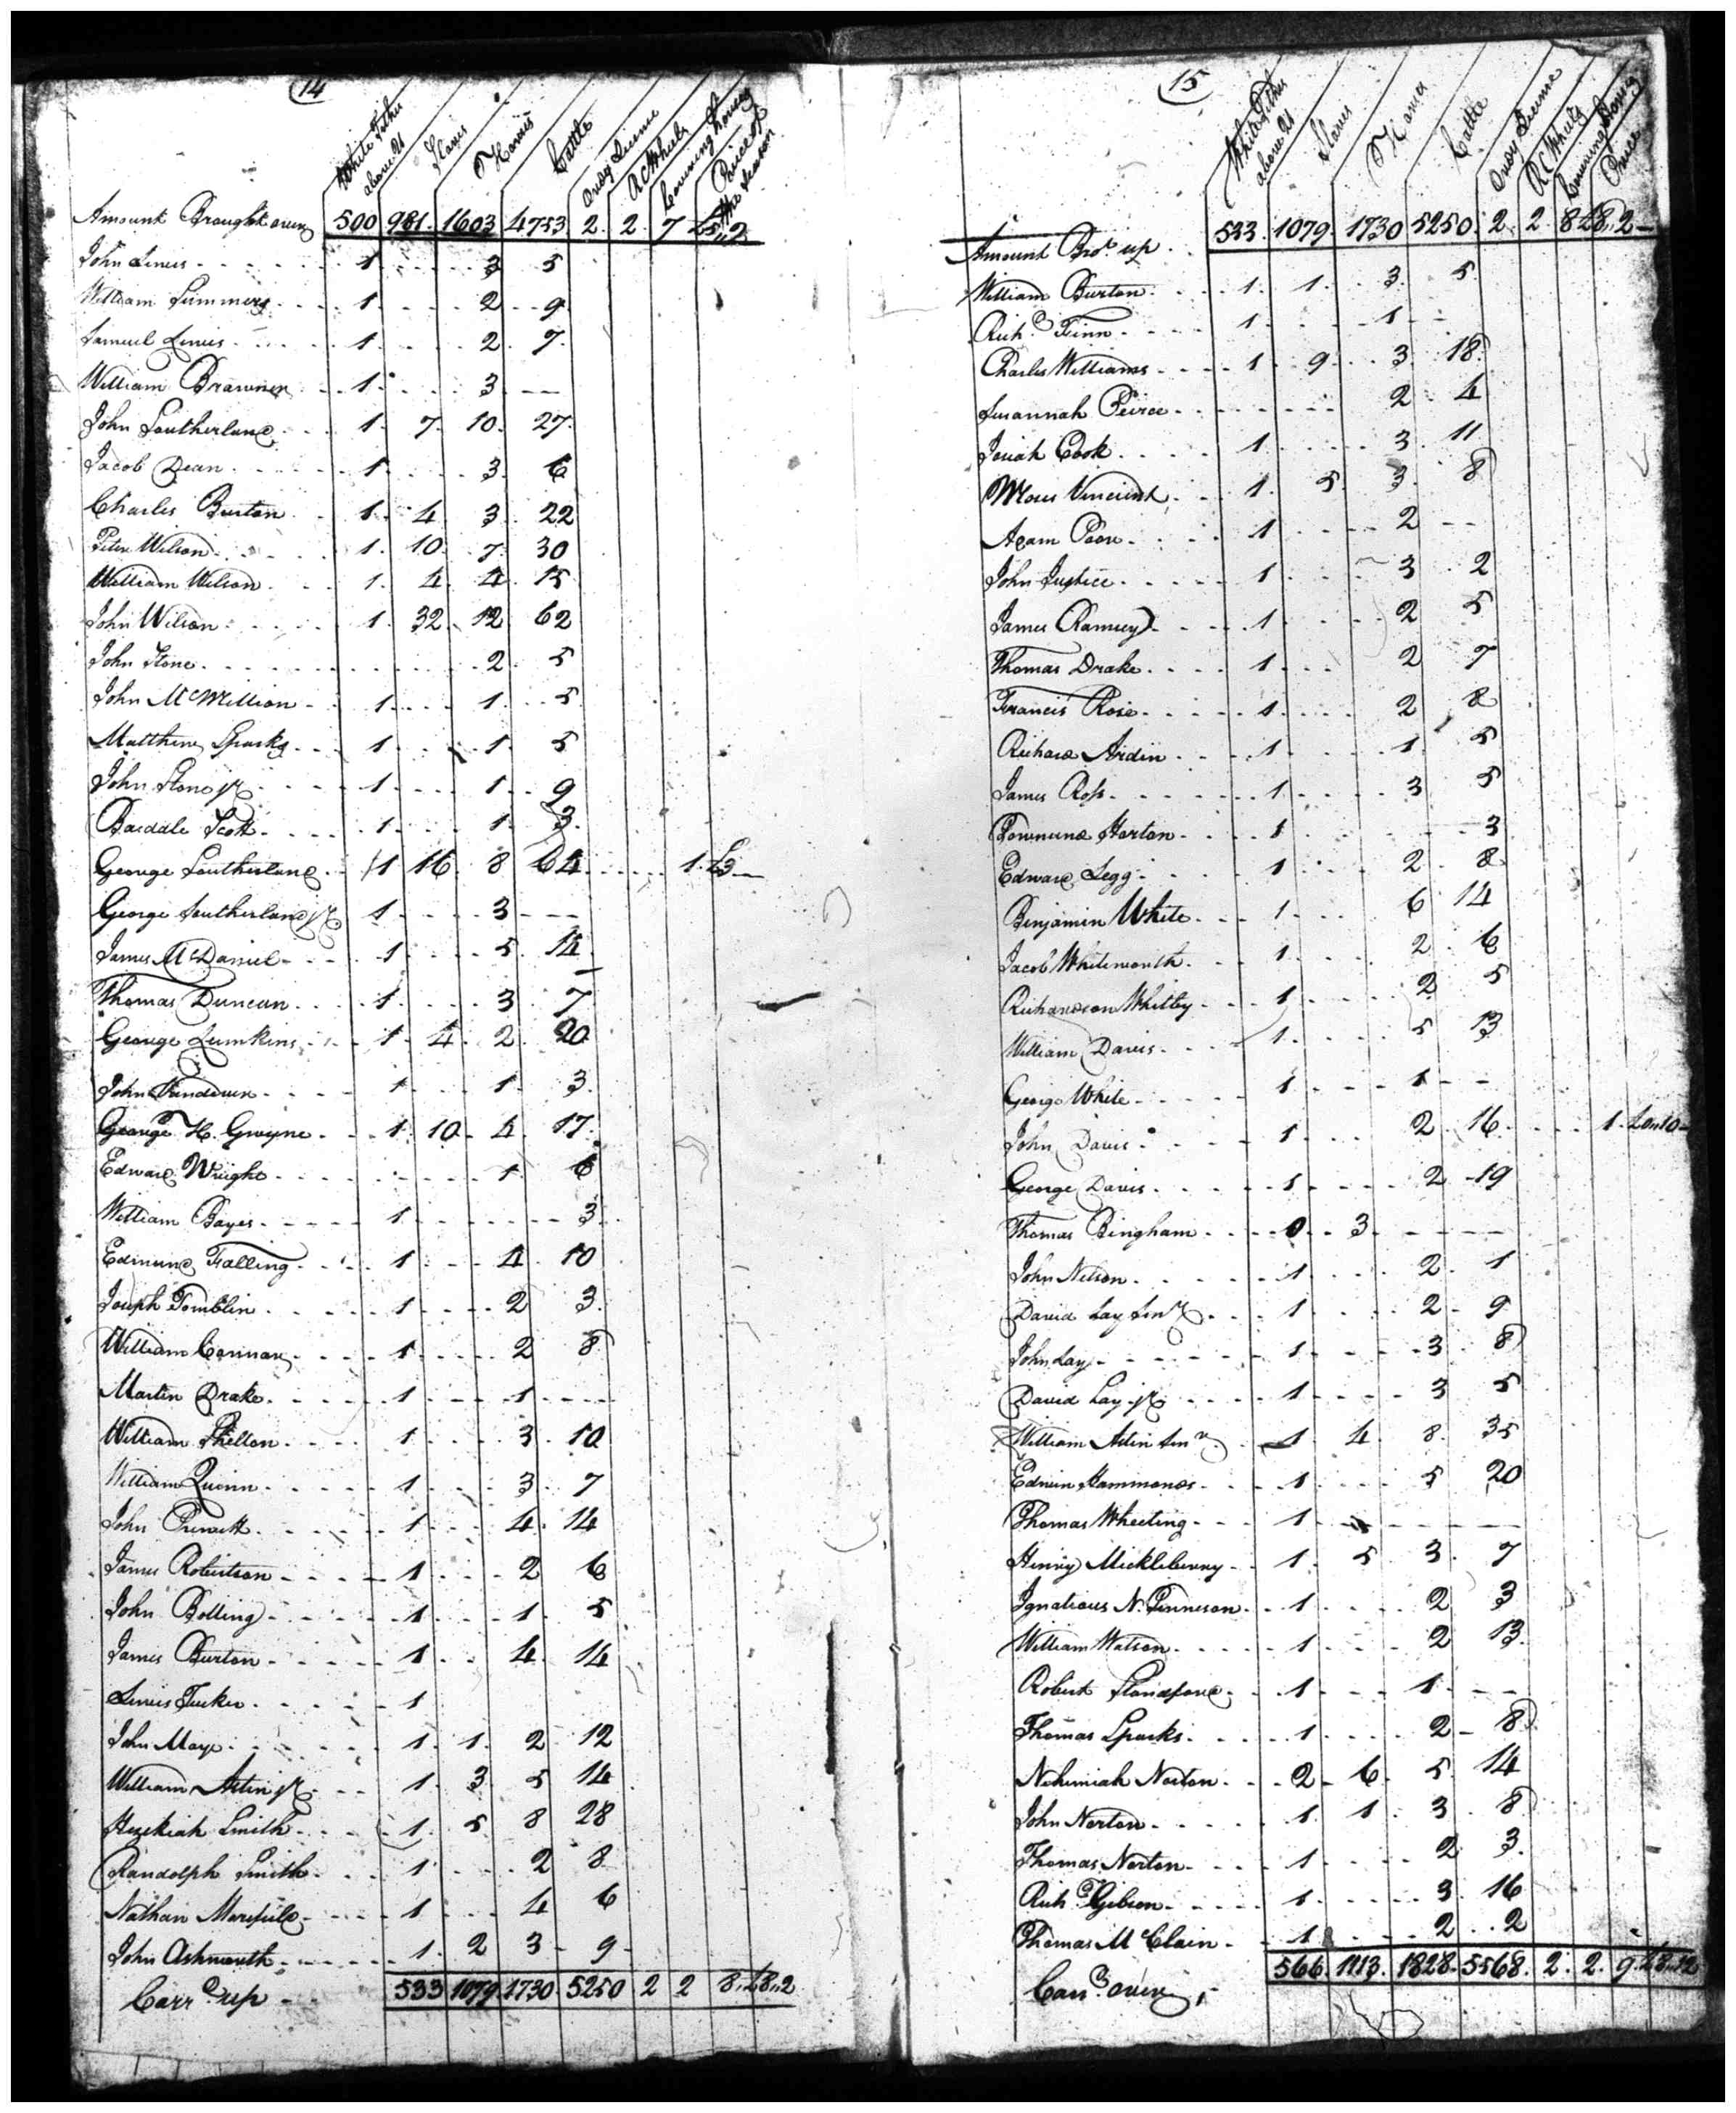 14
White Tithes above 21 Slaves Horses Cattle Ordy License R C Wheels Covering horses Price of the Season
Amount Brought over 500 981 1603 4753 2 2 7 £5,,2
John Lewis 1 3 5
William Summers 1 2 9
Samuel Lewis 1 2 7
William Brawner 1 3
John Southerland 1 7 10 27
Jacob Dean 1 3 6
Charles Burton 1 4 3 22
Peter Wilson 1 10 7 30
William Wilson 1 4 4 15
John Wilson 1 32 12 62
John Stone 2 5
John McMillion 1 1 5
Matthew Sparks 1 1 5
John Stone jr 1 1 9
Barsdale Scott 1 1 3
George Southerland 1 16 8 64 1 £3
George Southerland jr 1 3
James McDaniel 1 5 14
Thomas Duncan 1 3 7
George Lumkins 1 4 2 20
John 1 1 3
George H. Gwyne 1 10 4 17
Edward Wright 1 6
William Bayes 1 3
Edmund Falling 1 4 10
Joseph Tomblin 1 2 3
William Corman 1 2 8
Martin Drake 1 1
William Shelton 1 3 10
William Quinn 1 3 7
John Prewett 1 4 14
James Robertson 1 2 6
John Bolling 1 1 5
James Burton 1 4 14
Lewis Tucker 1
John Mays 1 1 2 12
William Astin jr 1 3 5 14
Hezekiah Smith 1 5 8 28
Randolph Smith 1 2 8
Nathan 1 4 6
John Ashworth 1 2 3 9
Carrd up 533 1079 1730 5250 2 2 8 £8,,2
15
White Tithes above 21 Slaves Horses Cattle Ordy License R C Wheels Covering Horses Price
Amount Brot up 533 1079 1730 5250 2 2 8 £8,,2
William Burton 1 1 3 5
Richd Finn 1 1
Charles Williams 1 9 3 18
Susannah Peirce 2 4
Josiah Cook 1 3 11
Moses Vincent 1 5 3 8
Adam Poore 1 2
John Justice 1 3 2
James Ramsey 1 2 5
Thomas Drake 1 2 7
Francis Rose 1 2 8
Richard Ardin 1 1 5
James Ross 1 3 5
Townsend Horton 1 3
Edward Legg 1 2 8
Benjamin White 1 6 14
Jacob Whitworth 1 2 6
Richardson Whitby 1 2 5
William Davis 1 5 13
George White 1 1
John Davis 1 2 16 1 £0,,10
George Davis 1 2 19
Thomas Bingham 0 3
John Nelson 1 2 1
David Lay Senr 1 2 9
John Lay 1 3 8
David Lay jr 1 3 5
William Astin Senr 1 4 8 35
Edwin Hammonds 1 5 20
Thomas Wheeting 1
Henry Mickleberry 1 5 3 7
Ignatious N. Tennison 1 2 3
William Watson 1 2 13
Robert Standford 1 1
Thomas Sparks 1 2 8
Nehimiah Norton 2 6 5 14
John Norton 1 1 3 8
Thomas Norton 1 2 3
Richd Gibson 1 3 16
Thomas M Clain 1 2 2
Carrd over 566 1113 1828 5568 2 2 9 £8,,12